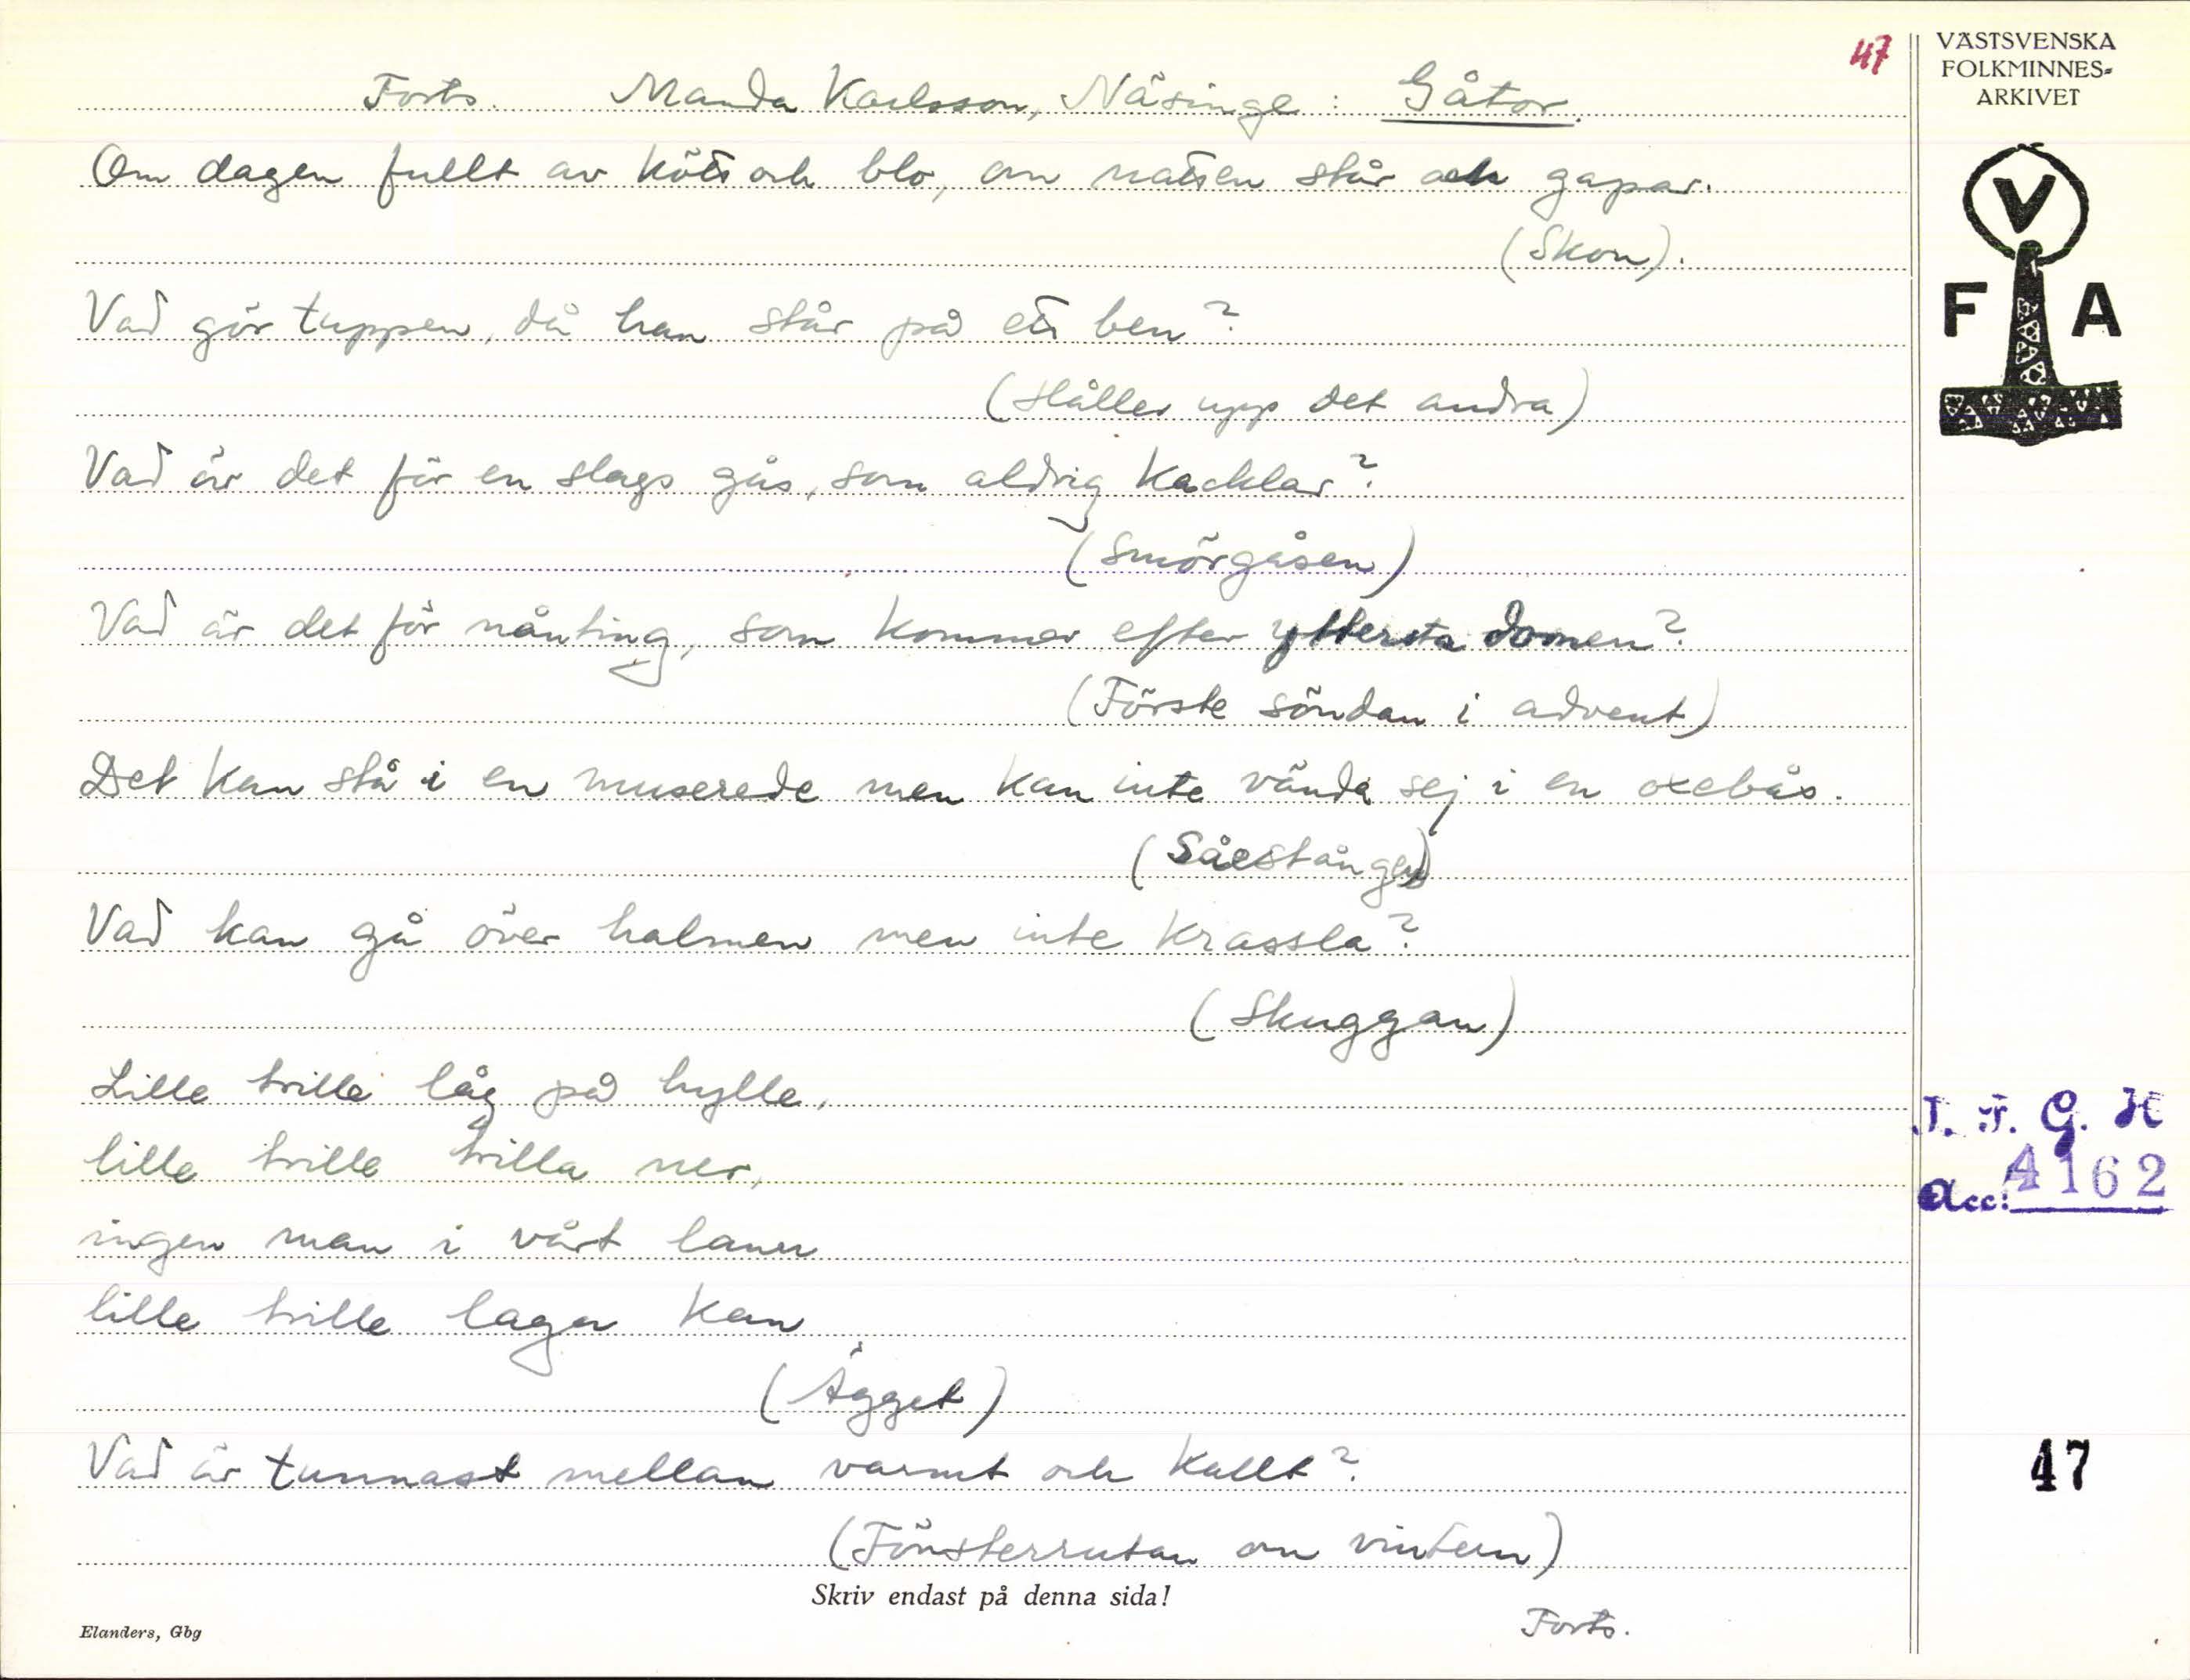 47
VÄSTSVENSKA
FOLKMINNES-
ARKIVET
Forts. Manda Karlsson, Näsinge: Gåtor.
Om dagen fullt av kött och blo, om natten står och gapar.
(Skon).
V
F A
Vad gör tuppen, då han står på ett ben?
(Håller upp det andra)
Vad är det för en slags gås, som aldrig kacklar?
(Smörgåsen)
Vad är det för nånting, som kommer efter yttersta domen?
(Förste söndan i advent)
Det kan stå i en muserede men kan inte vända sej i en oxebås.
(Såestången)
Vad kan gå över halmen men inte krassla?
(Skuggan)
Lille trille låg på hylle,
lille trille trilla ner,
ingen man i vårt lann
lille trille laga kan
I. F. G. H
Acc: 4162
(Ägget)
Vad är tunnast mellan varmt och kallt?
47
(Fönsterrutan om vintern)
Skriv endast på denna sida!
Forts.
Elanders, Gbg